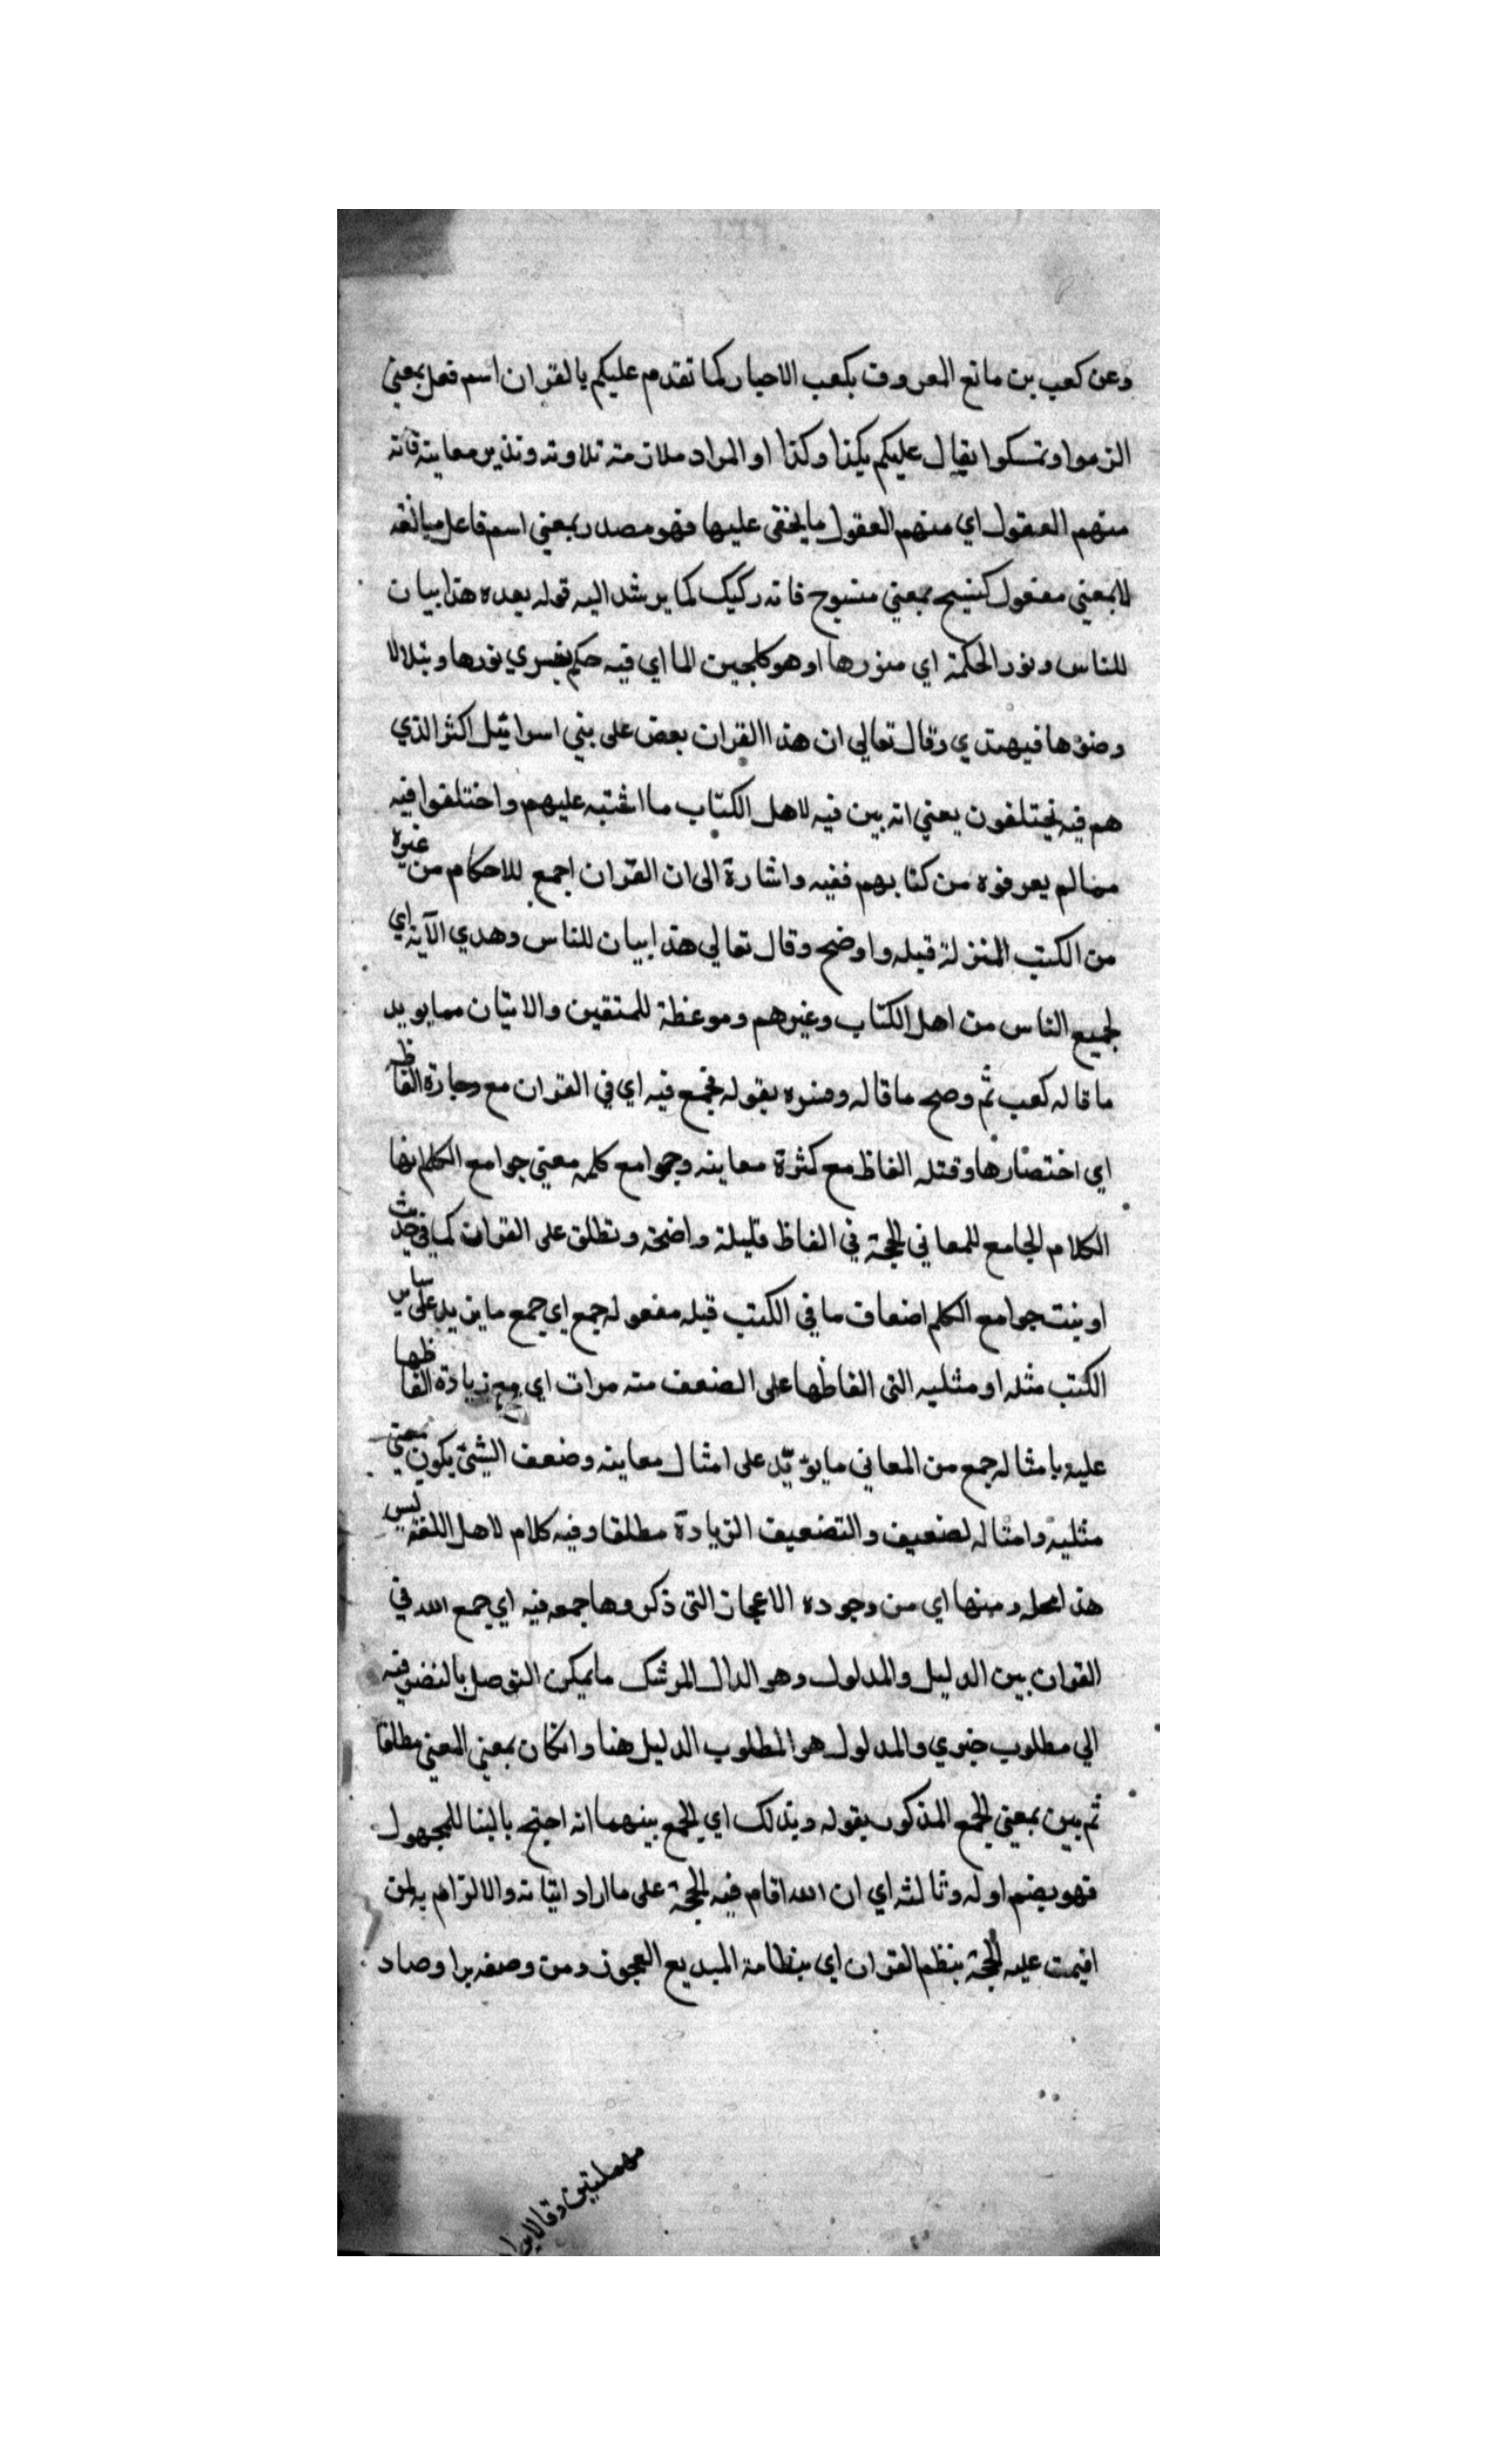 وعن كعب بن مانع المعروف بكعب الاحبار كما تقدم عليكم بالقران اسم فعل بمعنى
الزموا وتمسكوا يقال عليكم بكذا وكذا او المراد ملازمته تلاوته وتذبر معاينه فانه
منهم العقول اي منهم العقول ما يخفى عليها فهو مصدر بمعنى اسم فاعل مبالغه
لا بمعني مفعول كنسيج بمعني منسوج فانه ركيك كما يرشد اليه قوله بعده هذا بيان
للناس ونور الحكمة اي منورها او هو كلجين الما اي فيه حكم يسري نورها ويتلالا
وضوءها فيهتدي وقال تعالى ان هذا القران يعض على بني اسرائيل اكثر الذي
هم فيه يختلفون يعني انه بين فيه لاهل الكتاب ما اشتبه عليهم واختلفوا فيه
مما لم يعرفوه من كتابهم ففيه واشارة الى ان القران اجمع للاحكام من غيره
من الكتب المنزلة قبله واوضح وقال تعالي هذا بيان للناس وهدي الآية اي
لجميع الناس من اهل الكتاب وغيرهم وموعظة للمتقين والاتيان مما يويد
ما قاله كعب ثم وضح ما قاله وفسره بقوله فجمع فيه اي في القران مع وجازة الفاظه
اي اختصارها وقتله الفاظ مع كثرة معاينه وجوامع كلمه معني جوامع الكلم انها
الكلام الجامع للمعاني الجمة في الفاظ قليلة واضحة وتطلق على القران كما في حديث
اوتيت جوامع الكلم اضعاف ما في الكتب قبله مفعوله جمع اي جمع ما يزيد على ساير
الكتب مثله او مثليه التى الفاظها على الضعف منه مرات اي مع زيادة الفاظها
عليه بامثاله جمع من المعاني ما يؤيد على امثال معاينه وضعف الشئ يكون بمعنى
مثليه وامثاله لضعيف والتضعيف الزيادة مطلقا وفيه كلام لاهل اللغة ليس
هذا محله ومنها اي من وجوده الاعجاز التى ذكروها جمعه فيه اي جمع الله في
القران بين الدليل والمدلول وهو الدال المرشد ما يمكن التوصل بالنضر فيه
الي مطلوب خبري والمدلول هو المطلوب الدليل هنا وان كان بمعنى المعنى مطلقا
ثم بين بمعنى الجمع المذكور بقوله وبذلك اي الجمع بينهما انه احتج بالبنا للمجهول
فهو بضم اوله وثالثه اي ان الله اقام فيه الحجة على ما اراد اثباته والالزام به لمن
اقيمت عليه الحجة بنظم القران اي بنظامة البديع المعجوز ومن وصفه برا وصاد
مهملتين وقال ابن ا